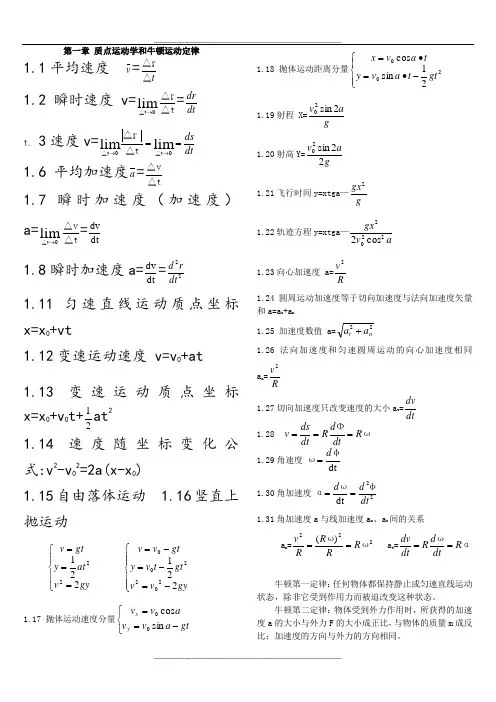 第一章 质点运动学和牛顿定律
1.1平均速度 v̄=△r/△t
1.2 瞬时速度 v=lim(△t→0) △r/△t=dr/dt
1. 3速度v=lim(△t→0) |△r|/△t=lim(△t→0)=ds/dt
1.6 平均加速度ā=△v/△t
1.7 瞬时加速度（加速度）
a=lim(△t→0) △v/△t=dv/dt
1.8瞬时加速度a=dv/dt=d²r/dt²
1.11 匀速直线运动质点坐标
x=x₀+vt
1.12变速运动速度 v=v₀+at
1.13 变速运动质点坐标
x=x₀+v₀t+1/2at²
1.14 速度随坐标变化公
式:v²-v₀²=2a(x-x₀)
1.15自由落体运动 1.16竖直上
抛运动
{v=gt {v=v₀-gt
{y=1/2at² {y=v₀t-1/2gt²
{v²=2gy {v²=v₀²-2gy
1.17 抛体运动速度分量{vₓ=v₀cos a
{v_y=v₀sin a-gt
1.18 抛体运动距离分量{x=v₀cos a•t
{y=v₀sin a•t-1/2gt²
1.19射程 X=v₀²sin2a/g
1.20射高Y=v₀²sin2a/2g
1.21飞行时间y=xtga—gx²/g
1.22轨迹方程y=xtga—gx²/2v₀²cos²a
1.23向心加速度 a=v²/R
1.24 圆周运动加速度等于切向加速度与法向加速度矢量
和a=aₜ+aₙ
1.25 加速度数值 a=√(aₜ²+aₙ²)
1.26 法向加速度和匀速圆周运动的向心加速度相同
aₙ=v²/R
1.27切向加速度只改变速度的大小aₜ=dv/dt
1.28 v=ds/dt=RdΦ/dt=Rω
1.29角速度 ω=dφ/dt
1.30角加速度 α=dω/dt=d²φ/dt²
1.31角加速度a与线加速度aₙ、aₜ间的关系
aₙ=v²/R=(Rω)²/R=Rω² aₜ=dv/dt=Rdω/dt=Rα
牛顿第一定律：任何物体都保持静止或匀速直线运动
状态，除非它受到作用力而被迫改变这种状态。
牛顿第二定律：物体受到外力作用时，所获得的加速
度a的大小与外力F的大小成正比，与物体的质量m成反
比；加速度的方向与外力的方向相同。